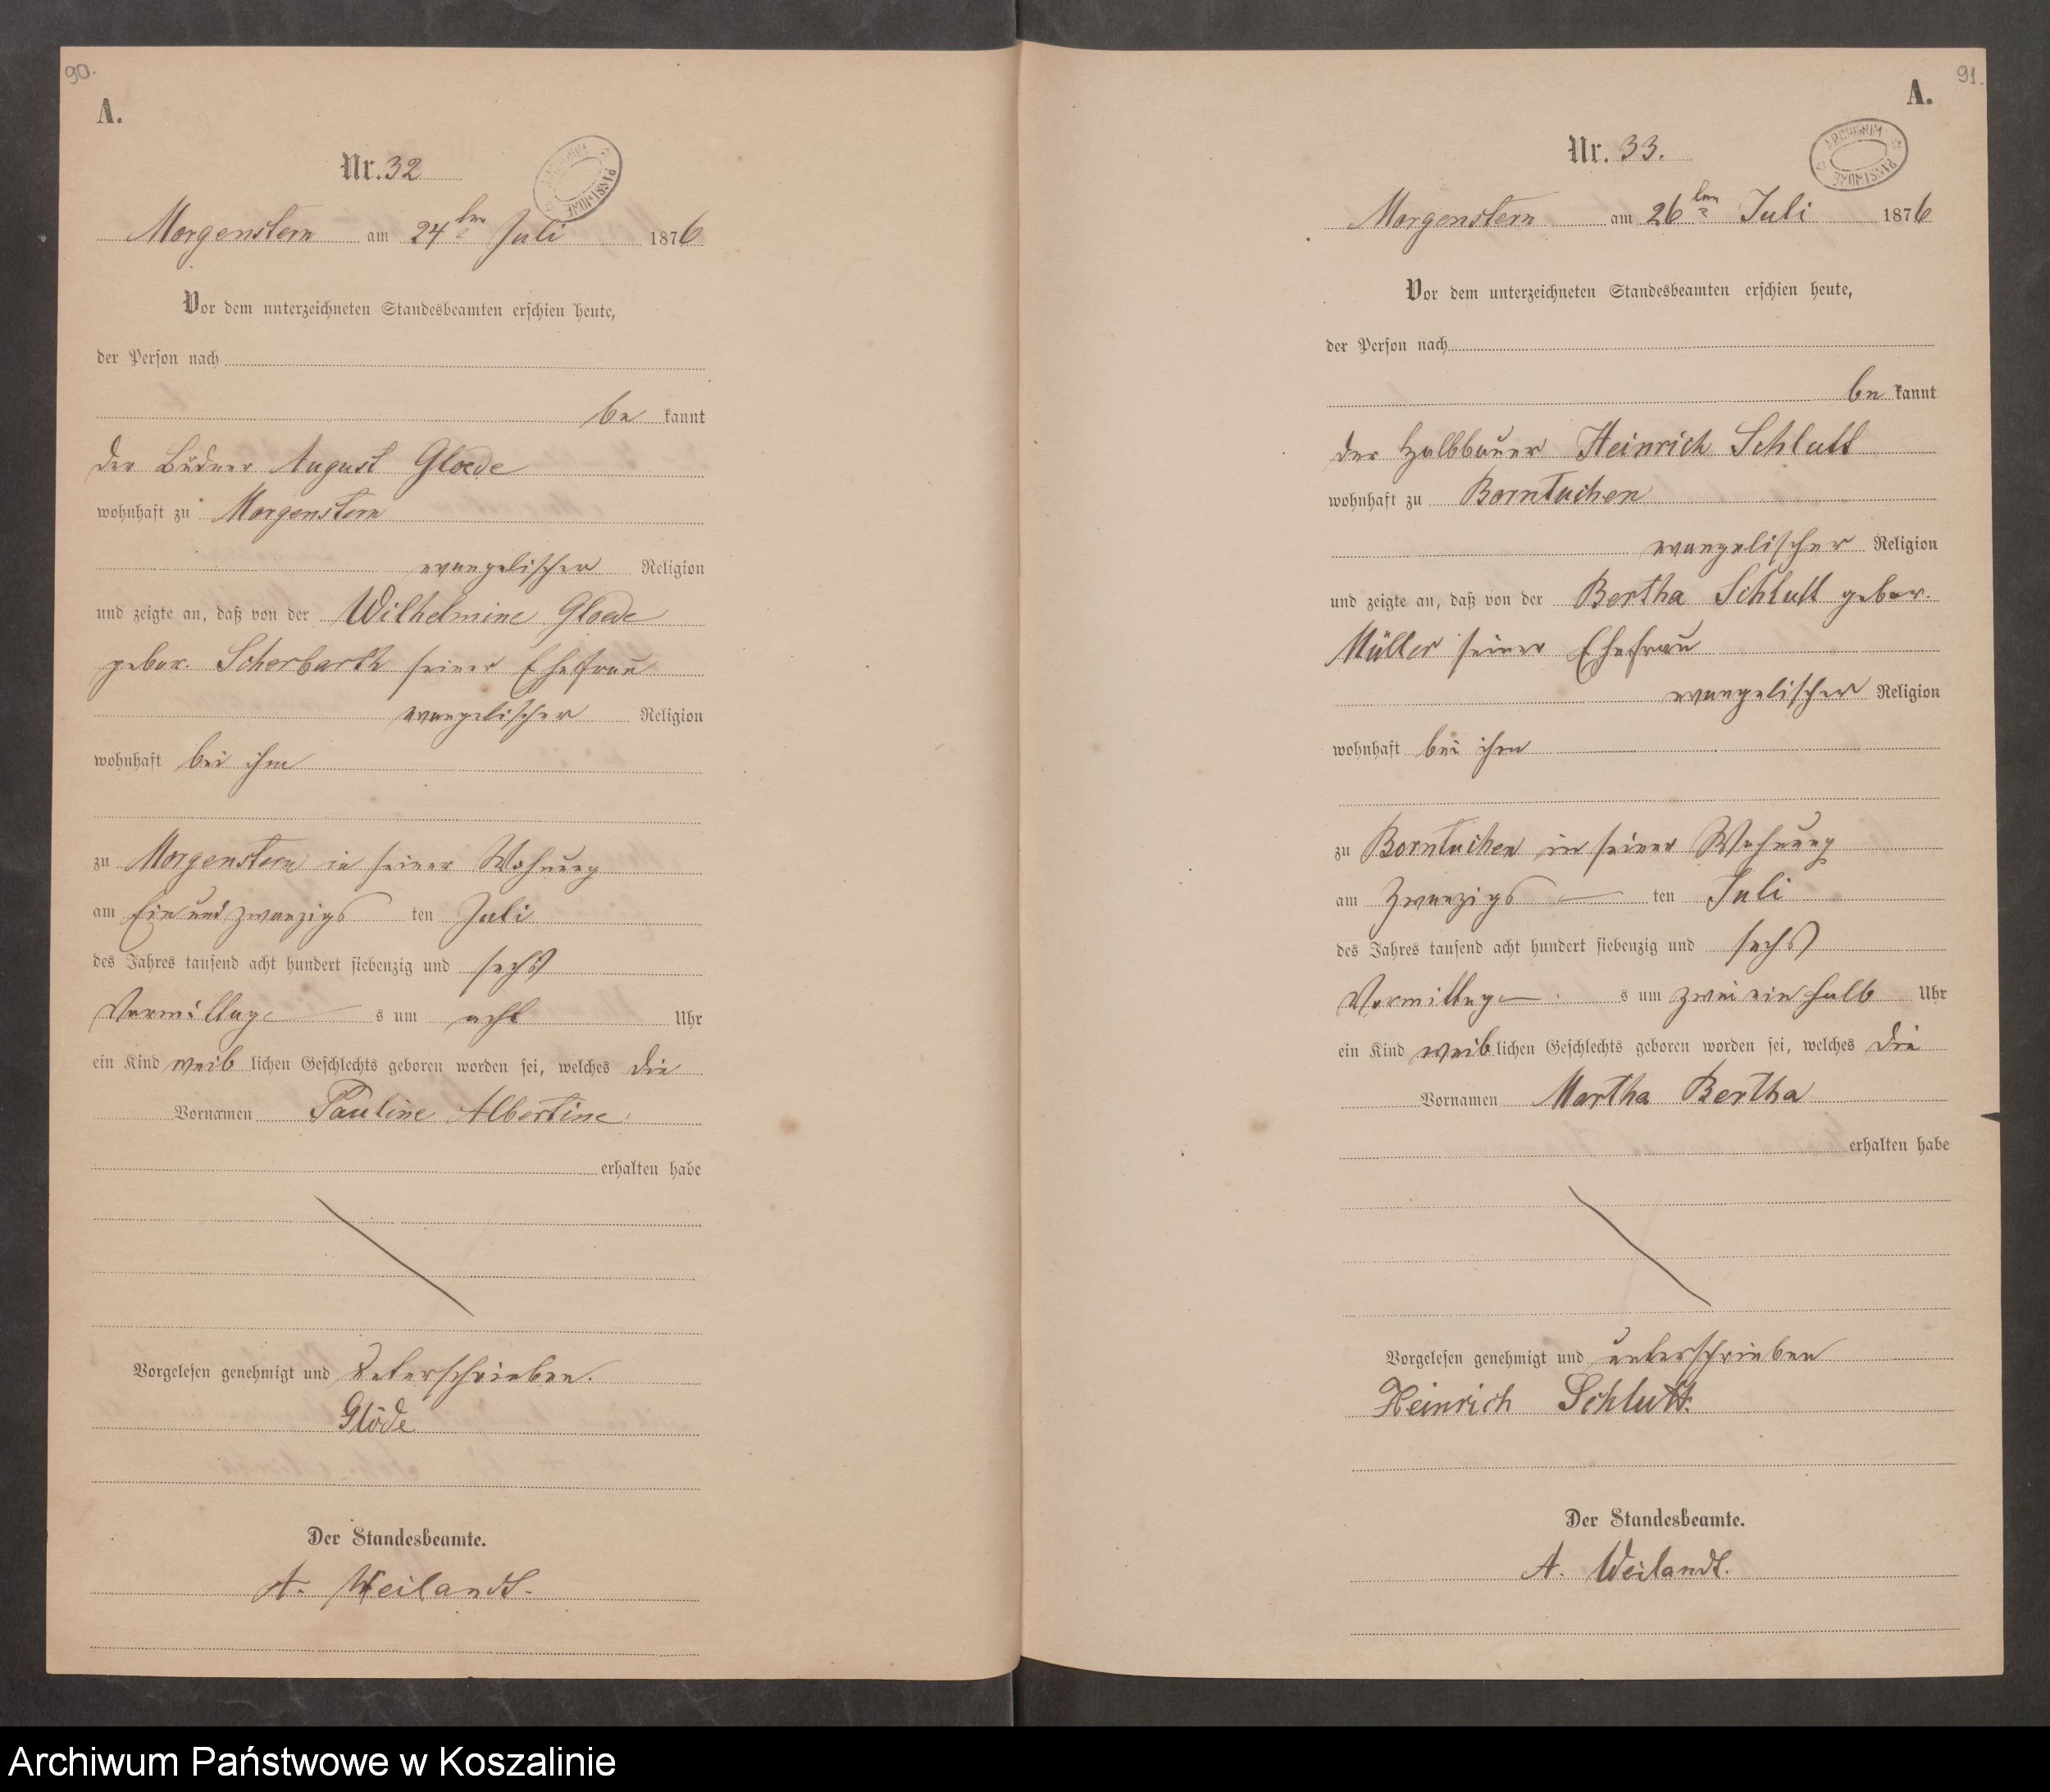 90.
A.
Nr. 32
Morgenstern am 24ten Juli 1876
Vor dem unterzeichneten Standesbeamten erschien heute,
der Person nach
be kannt
der Büdner August Gloede
wohnhaft zu Morgenstern
evangelischer Religion
und zeigte an, daß von der Wilhelmine Gloede
gebor. Scherbarth seiner Ehefrau
evangelischer Religion
wohnhaft bei ihm
zu Morgenstern in seiner Wohnung
am Ein und zwanzigs ten Juli
des Jahres tausend acht hundert siebenzig und sechs
Vormittag s um acht Uhr
ein Kind weib lichen Geschlechts geboren worden sei, welches die
Vornamen Pauline Albertine
erhalten habe
Vorgelesen genehmigt und unterschrieben.
Glöde
Der Standesbeamte.
A. Weilandt.
91.
A.
ARCHIWUM PAŃSTWOWE
Nr. 33.
Morgenstern am 26ten Juli 1876
Vor dem unterzeichneten Standesbeamten erschien heute,
der Person nach
be kannt
der Halbbauer Heinrich Schlutt
wohnhaft zu Borntuchen
evangelischer Religion
und zeigte an, daß von der Bertha Schlutt gebor.
Müller seiner Ehefrau
evangelischer Religion
wohnhaft bei ihm
zu Borntuchen in seiner Wohnung
am Zwanzigs ten Juli
des Jahres tausend acht hundert siebenzig und sechs
Vormittag s um zwei ein halb Uhr
ein Kind weib lichen Geschlechts geboren worden sei, welches die
Vornamen Martha Bertha
erhalten habe
Vorgelesen genehmigt und unterschrieben
Heinrich Schlutt.
Der Standesbeamte.
A. Weilandt.
Archiwum Państwowe w Koszalinie